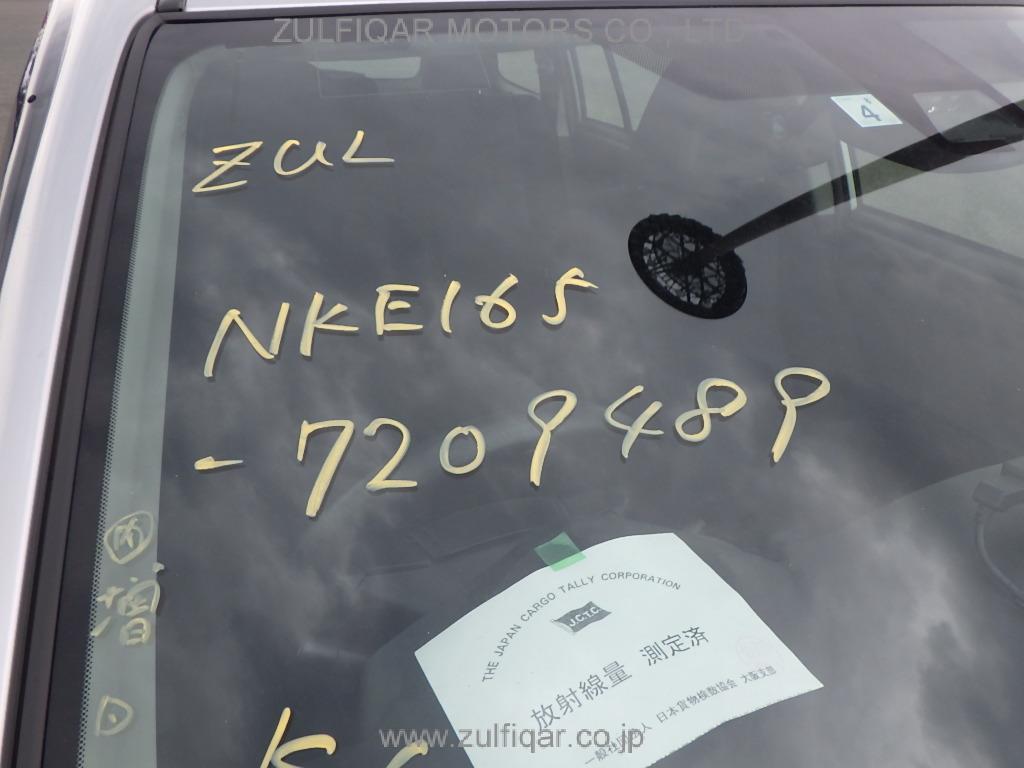 ZULFIQAR MOTORS CO., LTD
4
ZUL
NKE165
-7209489
THE JAPAN CARGO TALLY CORPORATION
J.C.T.C.
放射線量 測定済
日本貨物検数協会 大阪支部
www.zulfiqar.co.jp